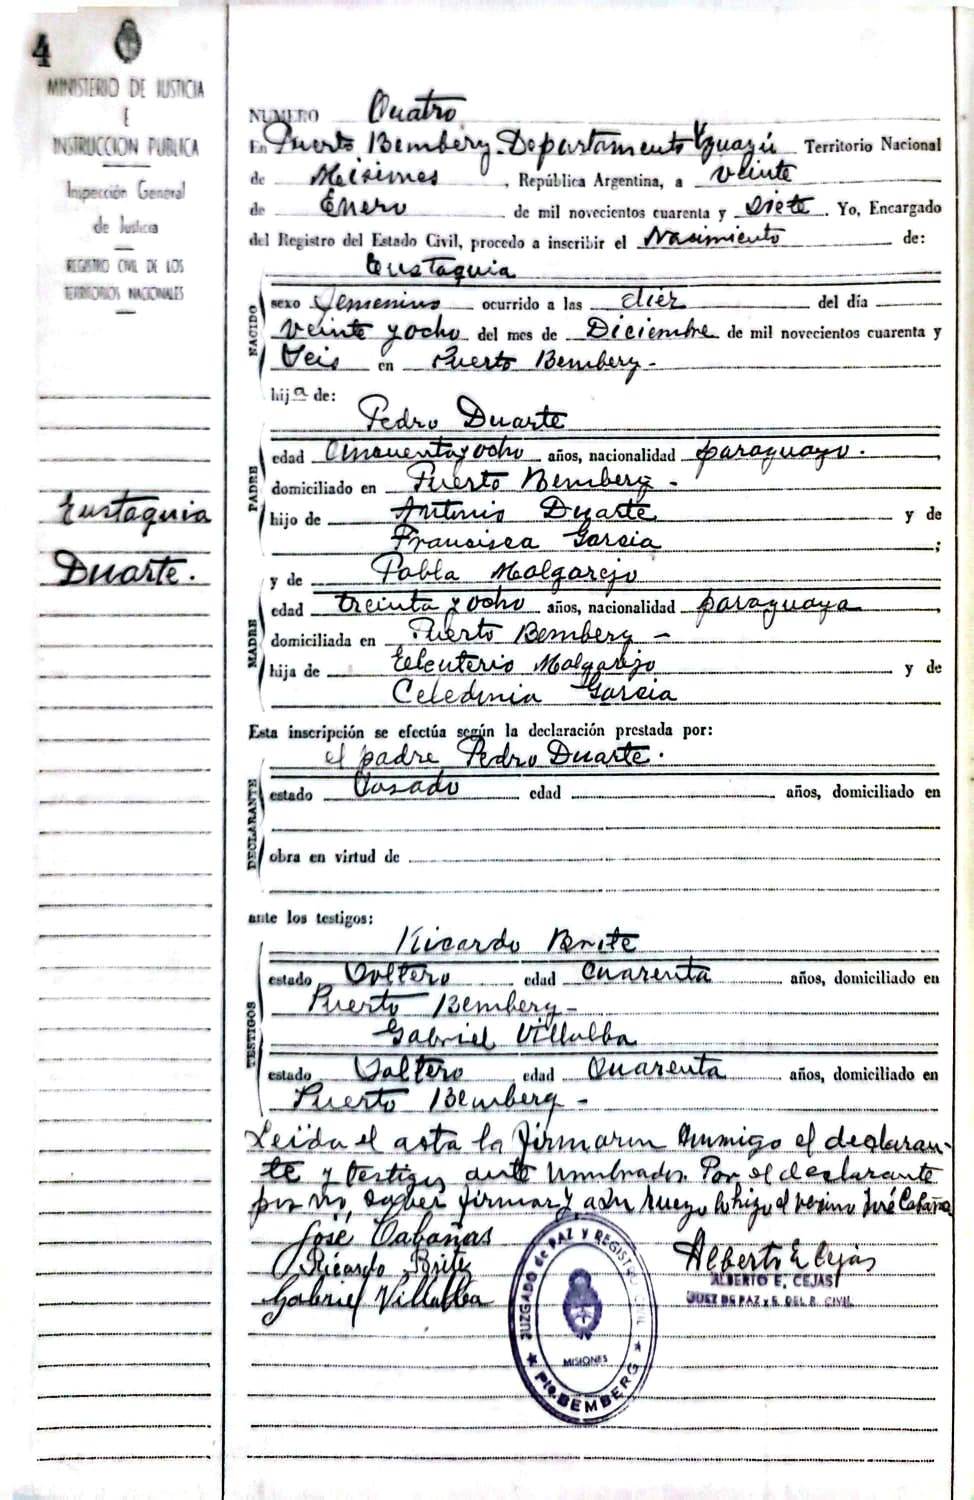 4
MINISTERIO DE JUSTICIA
E
INSTRUCCION PUBLICA
Inspección General
de Justicia
REGISTRO CIVIL DE LOS
TERRITORIOS NACIONALES
Eustaquia
Duarte.
NUMERO Cuatro
En Puerto Bemberg. Departamento Yguazú Territorio Nacional
de Misiones, República Argentina, a veinte
de Enero de mil novecientos cuarenta y Siete. Yo, Encargado
del Registro del Estado Civil, procedo a inscribir el Nacimiento de:
Eustaquia
NACIDO
sexo femenino ocurrido a las diez del día
veinte y ocho del mes de Diciembre de mil novecientos cuarenta y
Seis en Puerto Bemberg-
hija de:
Pedro Duarte
PADRE
edad Cincuenta y ocho años, nacionalidad paraguayo.,
domiciliado en Puerto Bemberg -
hijo de Antonio Duarte y de
Francisca Garcia ;
y de Pabla Malgarejo
MADRE
edad treinta y ocho años, nacionalidad paraguaya,
domiciliada en Puerto Bemberg -
hija de Eeleuterio Malgarejo y de
Celedonia Garcia
Esta inscripción se efectúa según la declaración prestada por:
el padre Pedro Duarte.
DECLARANTE
estado Casado edad años, domiciliado en
obra en virtud de
ante los testigos:
TESTIGOS
Ricardo Brite
estado Soltero edad Cuarenta años, domiciliado en
Puerto Bemberg-
Gabriel Villalba
estado Soltero edad Cuarenta años, domiciliado en
Puerto Bemberg -
Leida el acta la firmaron conmigo el declaran-
te y testigos ante nombrados. Por el declarante
por no saber firmar y a su ruego lo hizo el vecino José Cabañas
José Cabañas
Ricardo Brite
Gabriel Villalba
Alberto E Cejas
ALBERTO E. CEJAS
JUEZ DE PAZ y E. DEL R. CIVIL
JUZGADO de PAZ Y REGISTRO CIVIL
MISIONES
★ Pto. BEMBERG ★